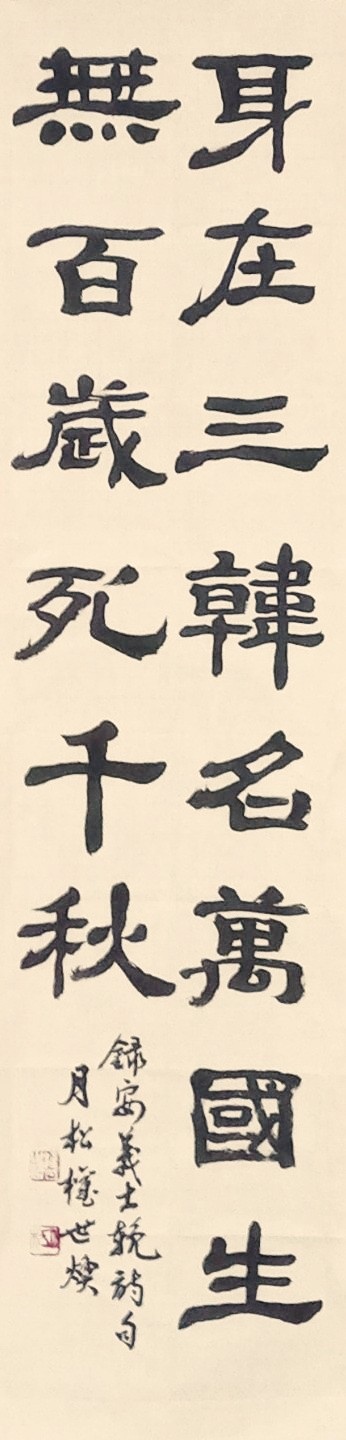 身在三韓名萬國生
無百歲死千秋
錄安義士輓詩句
月松權世煥